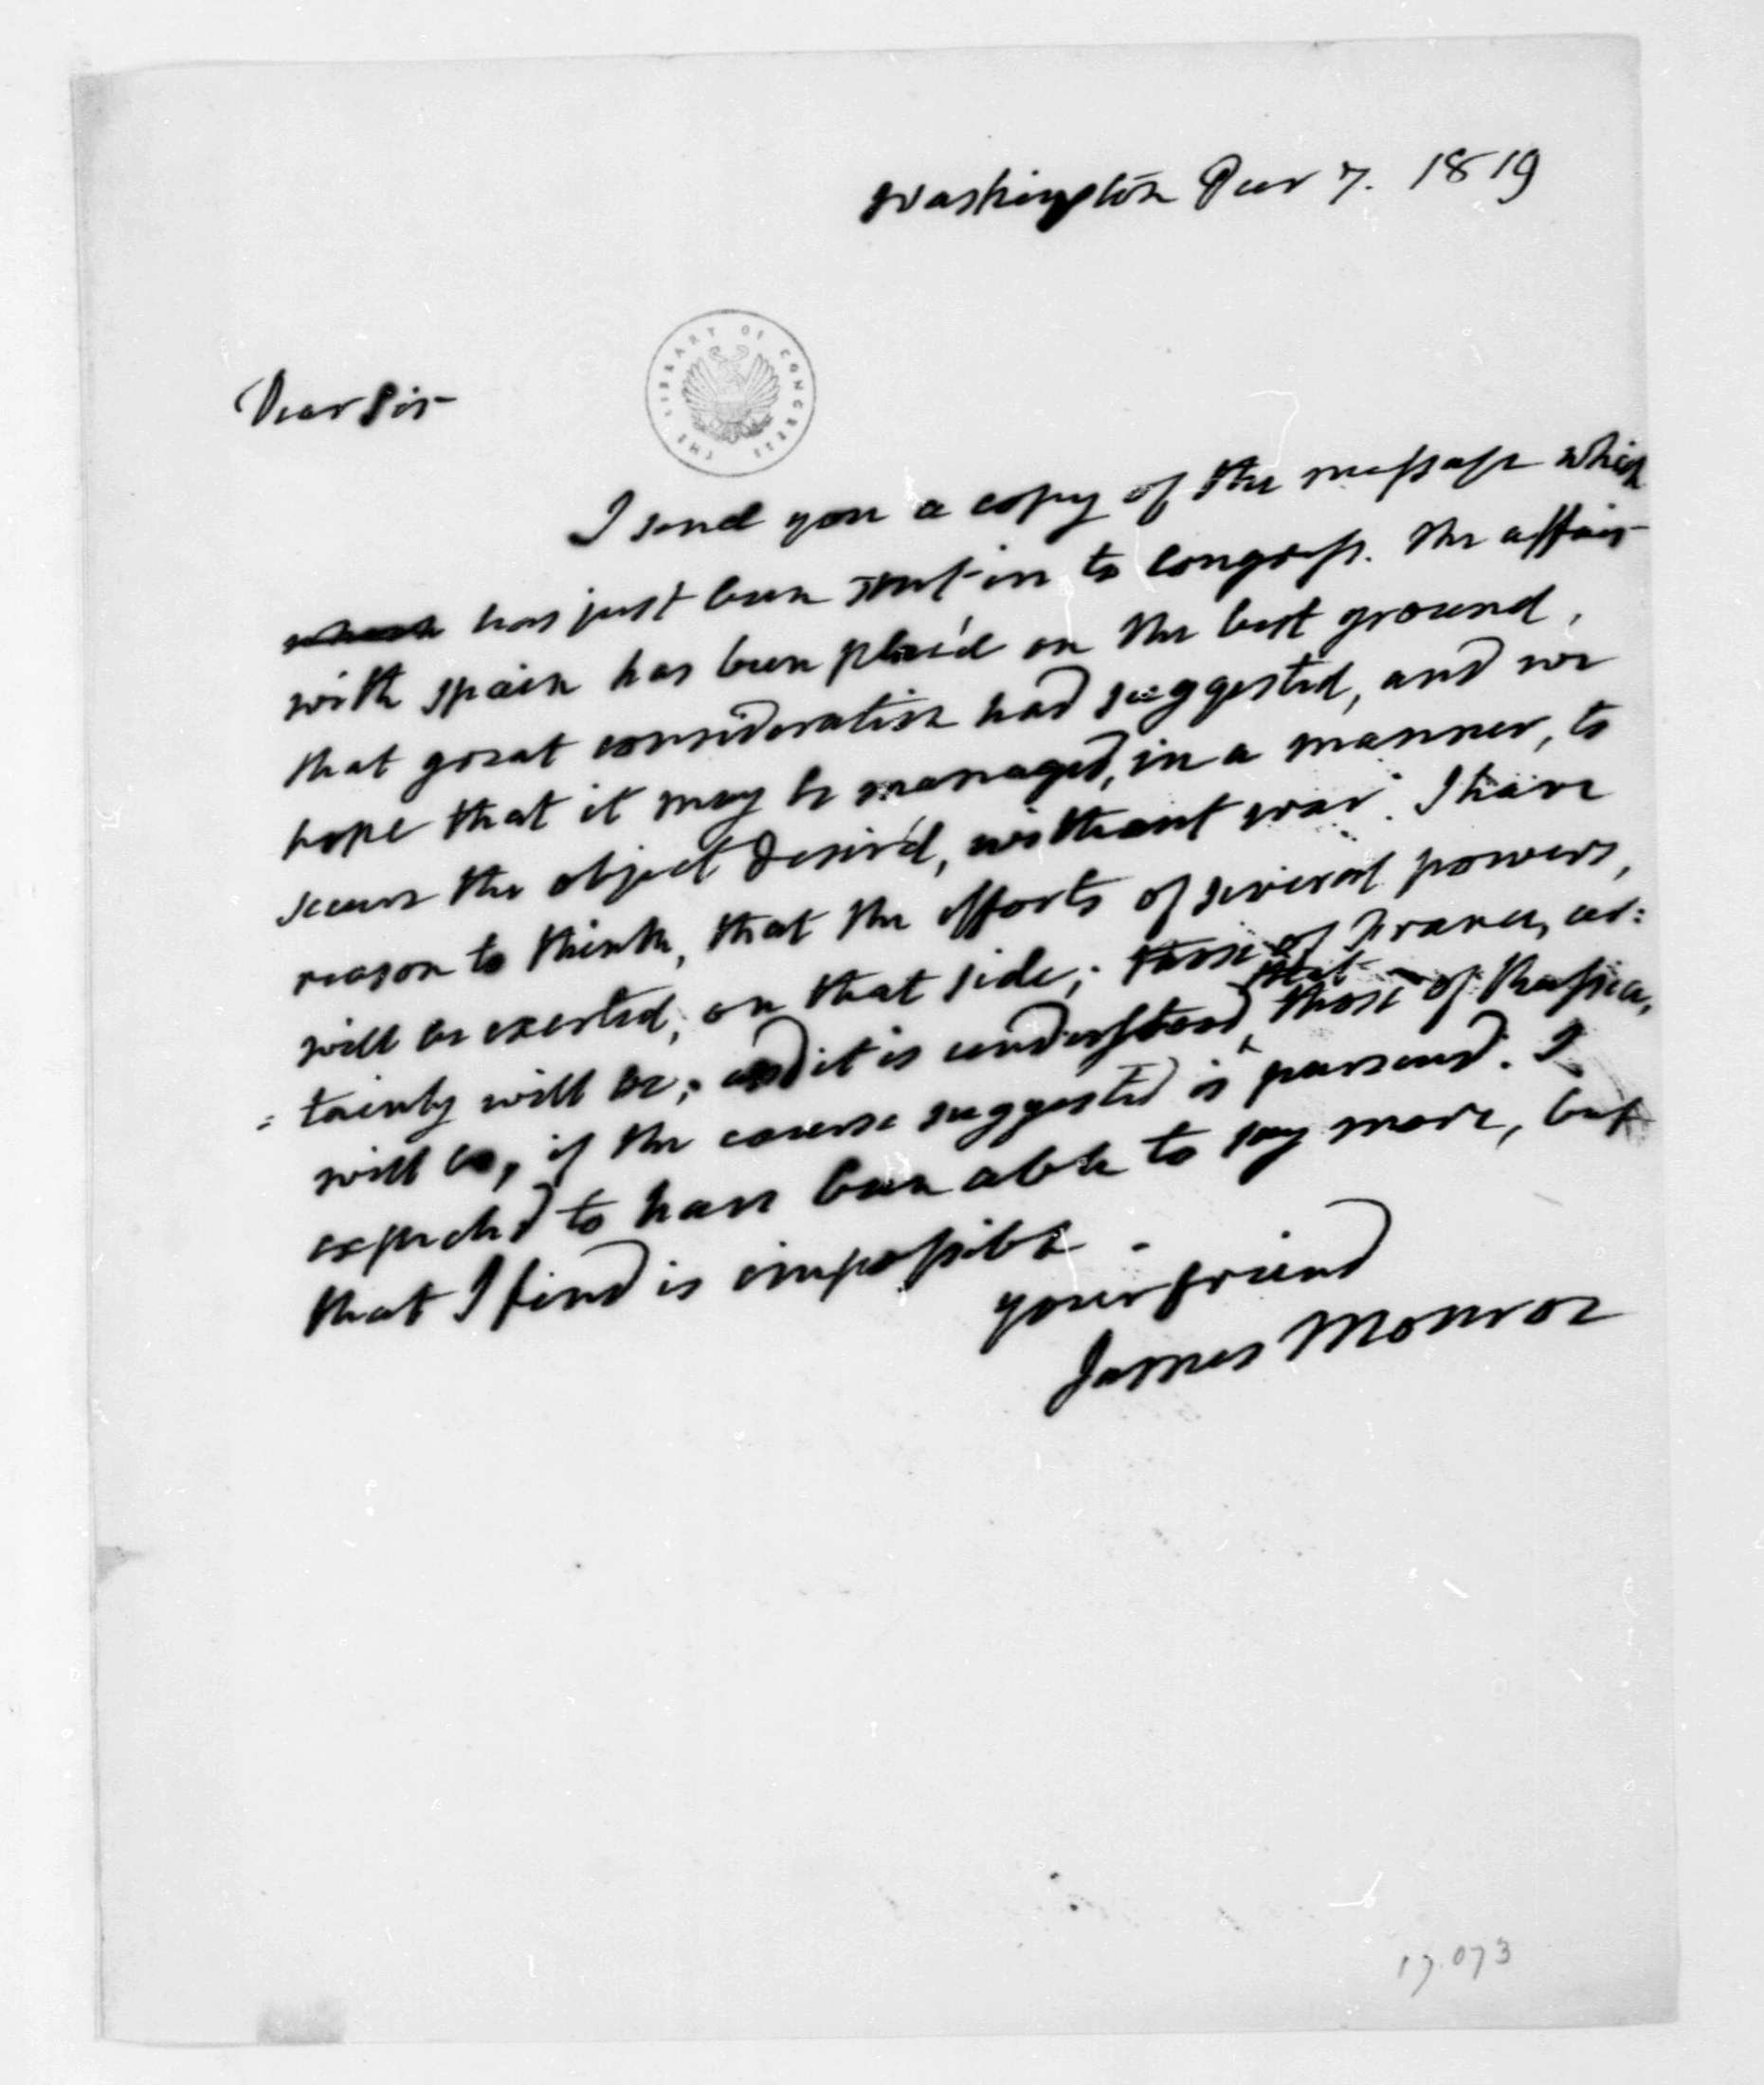 Washington Decr 7. 1819
THE LIBRARY OF CONGRESS
Dear Sir
I send you a copy of the message which
has just been sent in to Congress. The affair
with Spain has been plac'd on the best ground,
that great consideration had suggested, and we
hope that it may be managed, in a manner, to
secure the object desir'd, without war. I have
reason to think, that the efforts of several powers,
will be exerted, on that side; those of France, cer:
:tainly will be; and it is understood that those of Russia,
will be, if the course suggested is pursued. I
expected to have been able to say more, but
that I find is impossible.
your friend
James Monroe
17.073